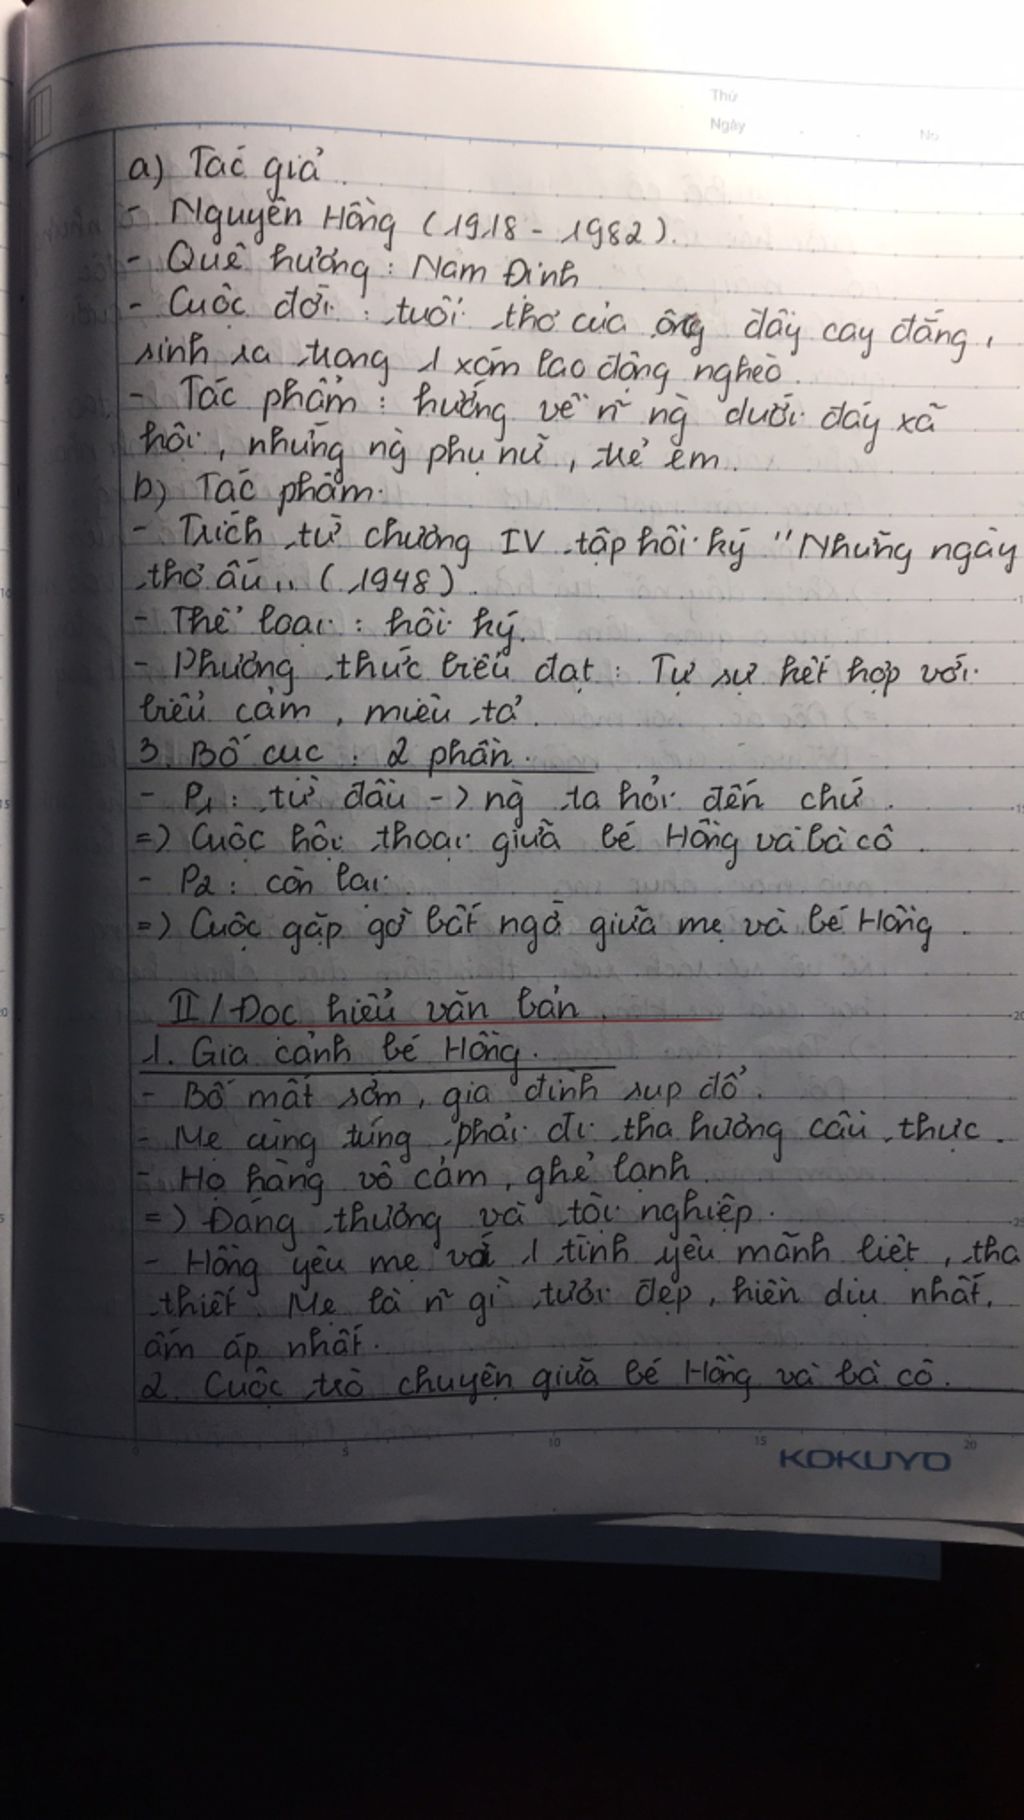 Thứ
Ngày
No
a) Tác giả.
- Nguyên Hồng (1918 - 1982).
- Quê hương : Nam Định
- Cuộc đời : tuổi thơ của ông đầy cay đắng,
sinh ra trong 1 xóm lao động nghèo.
- Tác phẩm : hướng về n~ ng` dưới đáy xã
hội, những ng` phụ nữ, trẻ em.
b) Tác phẩm.
- Trích từ chương IV tập hồi ký "Những ngày
thơ ấu" (1948).
- Thể loại : hồi ký.
- Phương thức biểu đạt : Tự sự kết hợp với
biểu cảm, miêu tả.
3. Bố cục : 2 phần.
- P1 : từ đầu -> ng` ta hỏi đến chứ.
=> Cuộc hội thoại giữa bé Hồng và bà cô.
- P2 : còn lại.
=> Cuộc gặp gỡ bất ngờ giữa mẹ và bé Hồng.
II / Đọc hiểu văn bản.
1. Gia cảnh bé Hồng.
- Bố mất sớm, gia đình sụp đổ.
- Mẹ cùng túng phải đi tha hương cầu thực.
- Họ hàng vô cảm, ghẻ lạnh.
=> Đáng thương và tội nghiệp.
- Hồng yêu mẹ với 1 tình yêu mãnh liệt, tha
thiết. Mẹ là n~ gì tươi đẹp, hiền dịu nhất,
ấm áp nhất.
2. Cuộc trò chuyện giữa bé Hồng và bà cô.
KOKUYO